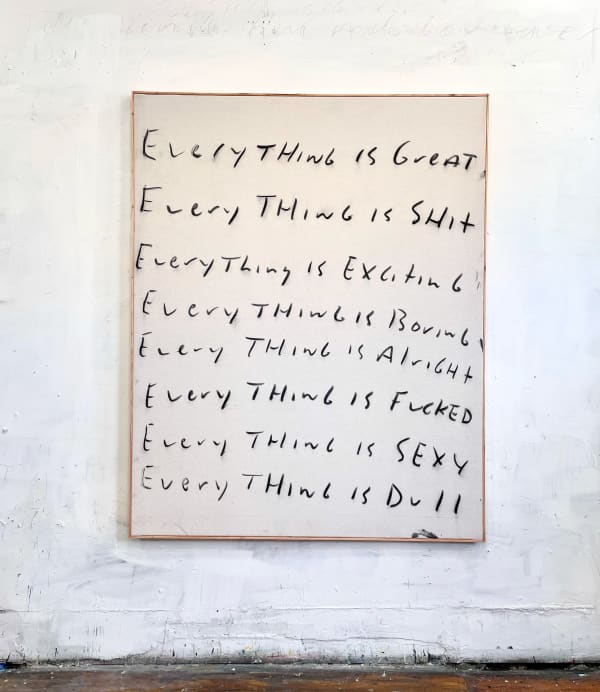 EveryTHinG is GreAT
Every THinG is SHit
EveryThing is ExcitinG
Every THinG is BorinG
Every THinG is AlriGHt
Every THinG is FucKED
Every THinG is SEXY
Every THinG is Dull